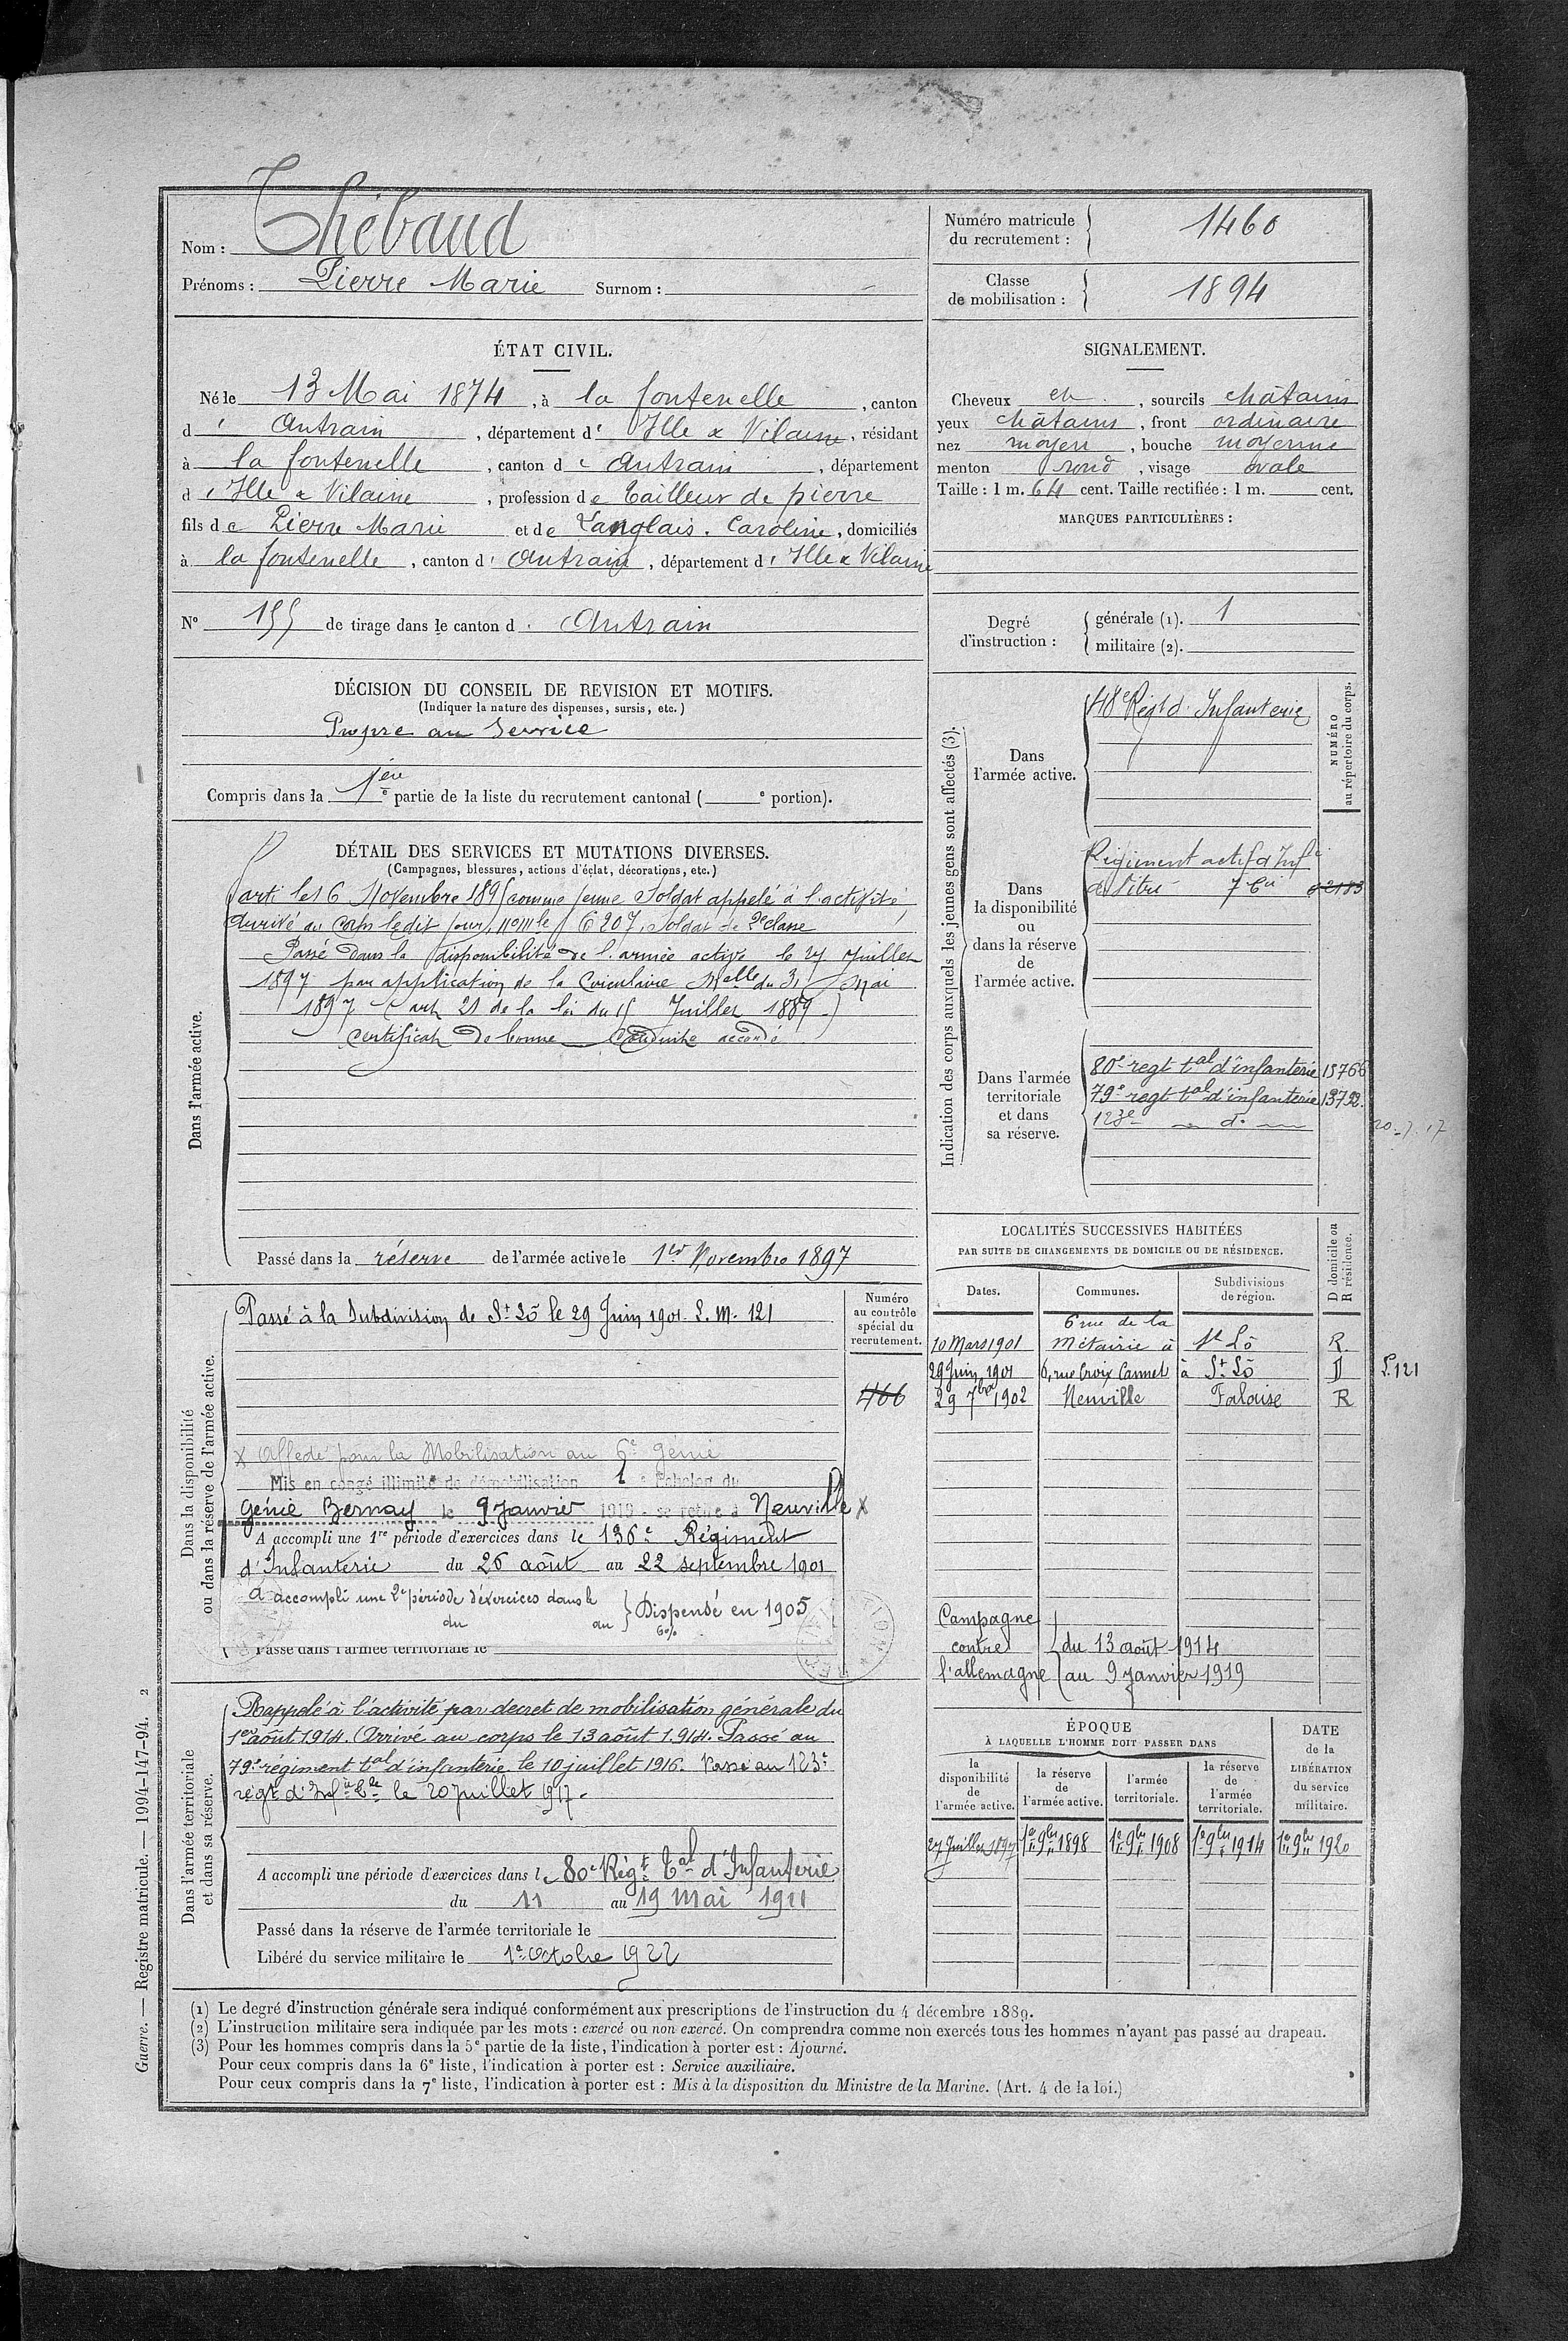 Nom : Thébaud
Prénoms : Pierre Marie Surnom : -
Numéro matricule du recrutement : 1460
Classe de mobilisation : 1894
ÉTAT CIVIL.
Né le 13 Mai 1874, à la fontenelle, canton
d' Antrain, département d' Ille & Vilaine, résidant
à la fontenelle, canton d' Antrain, département
d' Ille & Vilaine, profession de tailleur de pierre
fils de Pierre Marie et de Langlais. Caroline, domiciliés
à la fontenelle, canton d' Antrain, département d' Ille & Vilaine
N° 155 de tirage dans le canton d' Antrain
DÉCISION DU CONSEIL DE REVISION ET MOTIFS.
(Indiquer la nature des dispenses, sursis, etc.)
Propre au Service
Compris dans la 1ère e partie de la liste du recrutement cantonal ( e portion).
SIGNALEMENT.
Cheveux ch., sourcils châtains
yeux châtains, front ordinaire
nez moyen, bouche moyenne
menton rond, visage ovale
Taille : 1 m. 64 cent. Taille rectifiée : 1 m. cent.
MARQUES PARTICULIÈRES :
Degré d'instruction : générale (1). 1
militaire (2).
DÉTAIL DES SERVICES ET MUTATIONS DIVERSES.
(Campagnes, blessures, actions d'éclat, décorations, etc.)
Dans l'armée active.
Parti le 16 Novembre 1895 comme jeune Soldat appelé à l'activité,
Arrivé au Corps ledit jour, n° mle 6207, Soldat de 2e classe
Passé dans la disponibilité de l'armée active le 27 Juillet
1897 par application de la Circulaire Melle du 31 Mai
1897 (art 21 de la loi du 15 Juillet 1889.)
Certificat de bonne Conduite accordé
Passé dans la réserve de l'armée active le 1er Novembre 1897
Indication des corps auxquels les jeunes gens sont affectés (3).
NUMÉRO au répertoire du corps.
Dans l'armée active.
48e Régt d' Infanterie
Dans la disponibilité ou dans la réserve de l'armée active.
Régiment actif d'Infie
de Vitré
Dans l'armée territoriale et dans sa réserve.
80e regt tal d'infanterie 15766
79e regt tal d'infanterie 13792.
123e — d° — 20-7.17
LOCALITÉS SUCCESSIVES HABITÉES
PAR SUITE DE CHANGEMENTS DE DOMICILE OU DE RÉSIDENCE.
Dates. Communes. Subdivisions de région. D domicile ou R résidence.
10 Mars 1901 6 rue de la Métairie à St Lô R.
29 Juin 1901 6, rue Croix Cannet à St Lô D P.121
29 7bre 1902 Neuville Falaise R
Campagne contre l'allemagne du 13 août 1914
au 9 janvier 1919
Dans la disponibilité ou dans la réserve de l'armée active.
Numéro au contrôle spécial du recrutement.
466
Passé à la Subdivision de St Lô le 29 Juin 1901. L.M. 121
x Affecté pour la Mobilisation au 6e génie
Mis en congé illimité de démobilisation 1 e Echelon du
Génie Bernay le 9 Janvier 1919 - se retire à Neuville x
A accompli une 1re période d'exercices dans le 136e Régiment
d'Infanterie du 26 août au 22 septembre 1901
A accompli une 2e période d'exercices dans le
du au Dispensé en 1905
6%
Passé dans l'armée territoriale le
Dans l'armée territoriale et dans sa réserve.
Rappelé à l'activité par decret de mobilisation générale du
1er août 1914. Arrivé au corps le 13 août 1914. Passé au
79e régiment tal d'infanterie le 10 juillet 1916. Passé au 123e
régt d'Infie tle le 20 juillet 1917.
A accompli une période d'exercices dans le 80e Régt Tal d'Infanterie
du 11 au 19 Mai 1911
Passé dans la réserve de l'armée territoriale le
Libéré du service militaire le 1er Octobre 1922
ÉPOQUE
À LAQUELLE L'HOMME DOIT PASSER DANS
la disponibilité de l'armée active. la réserve de l'armée active. l'armée territoriale. la réserve de l'armée territoriale. DATE de la LIBÉRATION du service militaire.
27 Juillet 1897 1er 9bre 1898 1er 9bre 1908 1er 9bre 1914 1er 9bre 1920
(1) Le degré d'instruction générale sera indiqué conformément aux prescriptions de l'instruction du 4 décembre 1889.
(2) L'instruction militaire sera indiquée par les mots : exercé ou non exercé. On comprendra comme non exercés tous les hommes n'ayant pas passé au drapeau.
(3) Pour les hommes compris dans la 5e partie de la liste, l'indication à porter est : Ajourné.
Pour ceux compris dans la 6e liste, l'indication à porter est : Service auxiliaire.
Pour ceux compris dans la 7e liste, l'indication à porter est : Mis à la disposition du Ministre de la Marine. (Art. 4 de la loi.)
Guerre. — Registre matricule. — 1994-147-94. 2